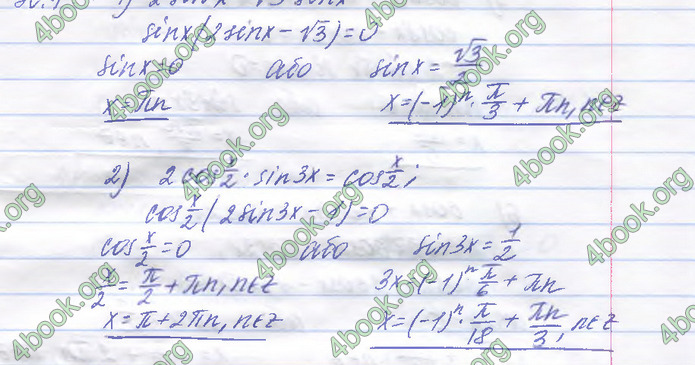 sinx(2sinx − √3) = 0
sinx = 0 або sinx = √3/2
x = πn x = (−1)ⁿ · π/3 + πn, n∈z
2) 2cos x/2 · sin3x = cos x/2;
cos x/2 (2sin3x − 1) = 0
cos x/2 = 0 або sin3x = 1/2
x/2 = π/2 + πn, n∈z 3x = (−1)ⁿ π/6 + πn
x = π + 2πn, n∈z x = (−1)ⁿ · π/18 + πn/3, n∈z
4book.org